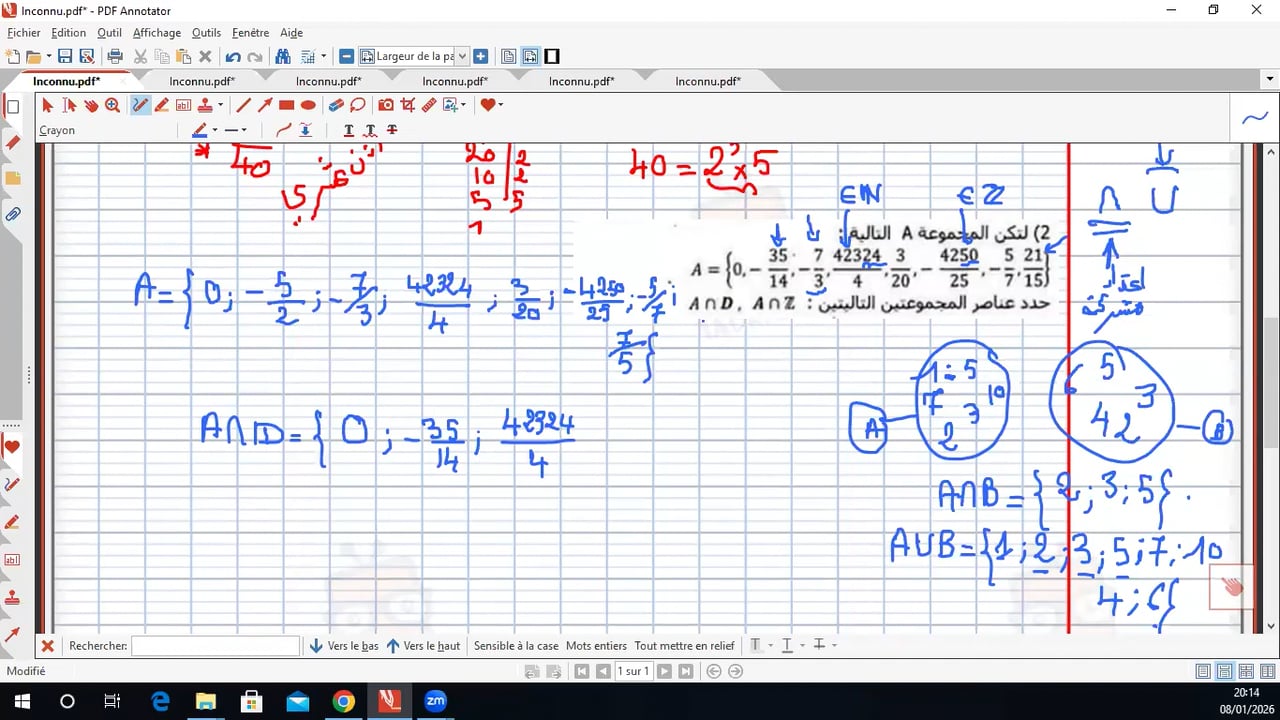 Inconnu.pdf* - PDF Annotator
Fichier Edition Outil Affichage Outils Fenêtre Aide
Largeur de la pa
Inconnu.pdf* Inconnu.pdf* Inconnu.pdf* Inconnu.pdf* Inconnu.pdf* Inconnu.pdf*
Crayon
* √40
20 | 2
10 | 2
5 | 5
1
40 = 2³ × 5
∈ ℕ ∈ ℤ
∩ ∪
2) لتكن المجموعة A التالية :
A = {0, -35/14, -7/3, 42324/4, 3/20, -4250/25, -5/7, 21/15}
حدد عناصر المجموعتين التاليتين : A ∩ ℤ , A ∩ D
مشتركة
A = { 0 ; -5/2 ; -7/3 ; 42324/4 ; 3/20 ; -4250/25 ; -5/7 ;
7/5 }
A∩ID = { 0 ; -35/14 ; 42324/4
1 5
7 3 10
2
A
5
6 3
4 2
B
A∩B = { 2 ; 3 ; 5 } .
A∪B = { 1 ; 2 ; 3 ; 5 ; 7 ; 10
4 ; 6 }
Rechercher: Vers le bas Vers le haut Sensible à la casse Mots entiers Tout mettre en relief
Modifié
1 sur 1
20:14
08/01/2026